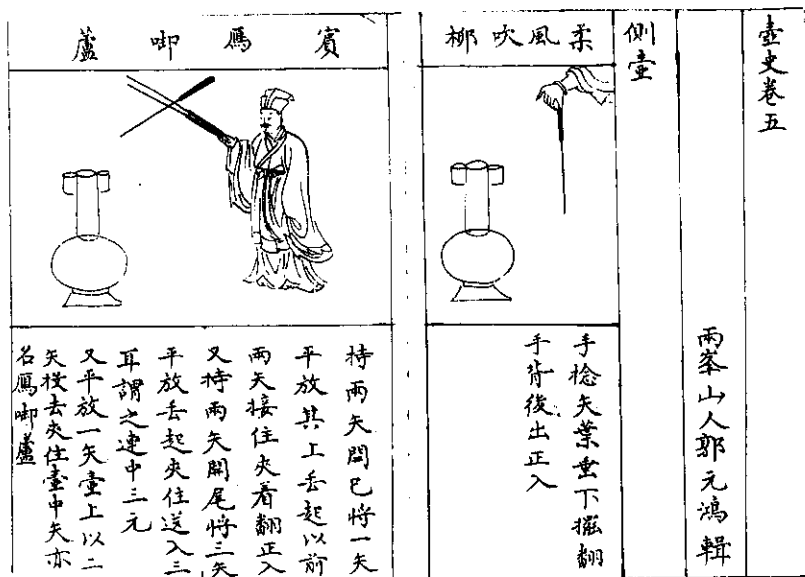 壺史卷五
兩峯山人郭元鴻輯
側壺
柔風吹柳
手捻矢葉垂下擺翻
手背後出正入
賓鴈啣蘆
持兩矢開已將一矢
平放其上丢起以前
兩矢接住夾着翻正入
又持兩矢開尾將三矢
平放丢起夾住送入三
耳謂之連中三元
又平放一矢壺上以二
矢投去夾住壺中矢亦
名鴈啣蘆